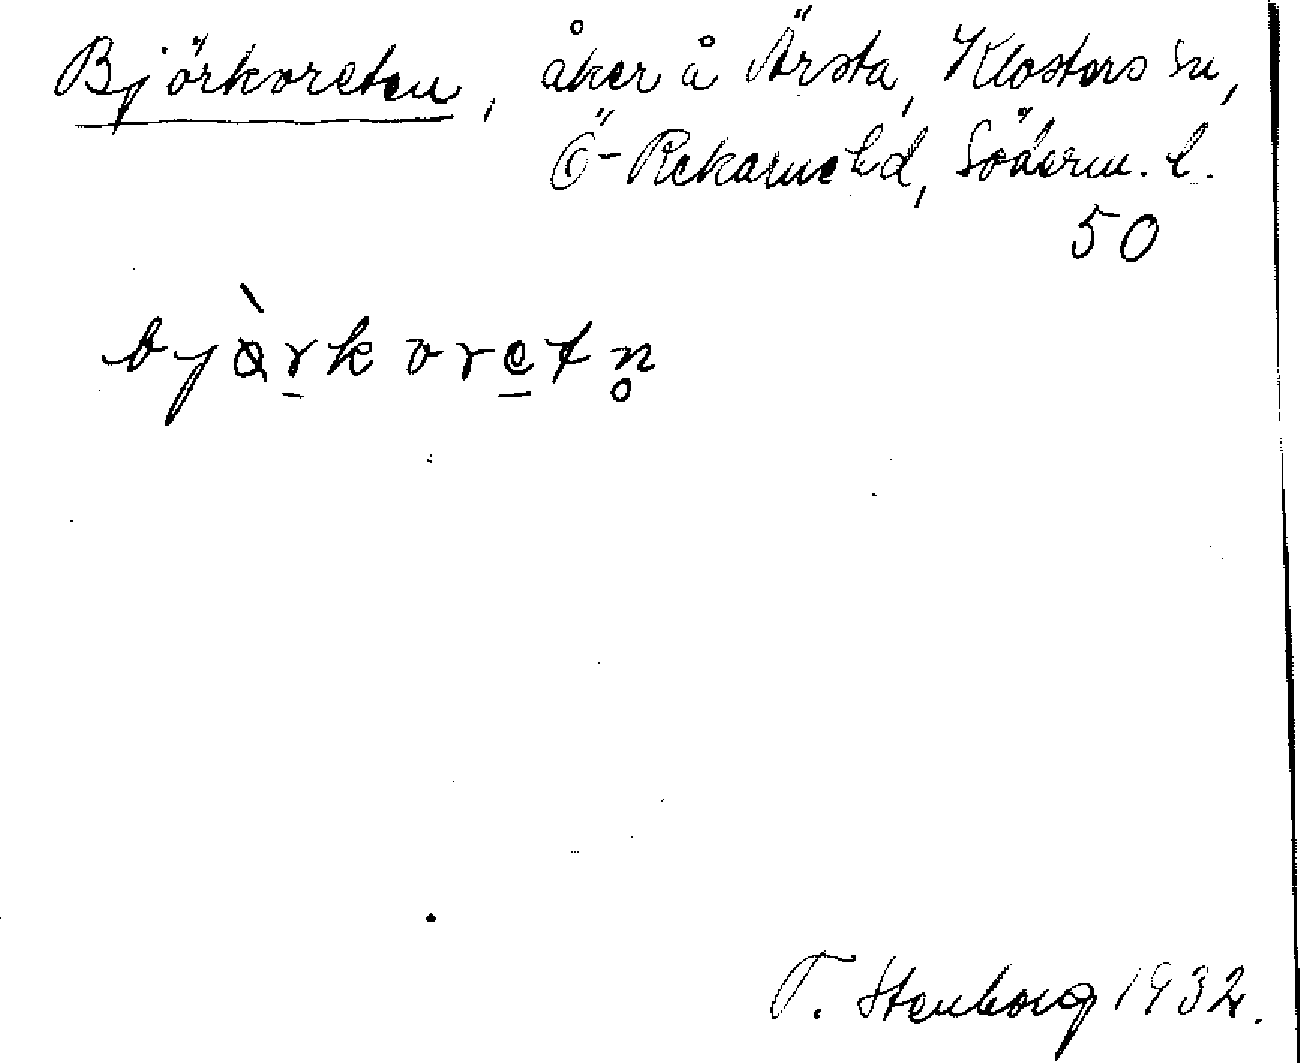 Björkoreten, åker å Ärsta, Klosters sn,
Ö-Rekarne hd, Söderm. l.
50
bjə̀rkoretn̥
T. Stenborg 1932.